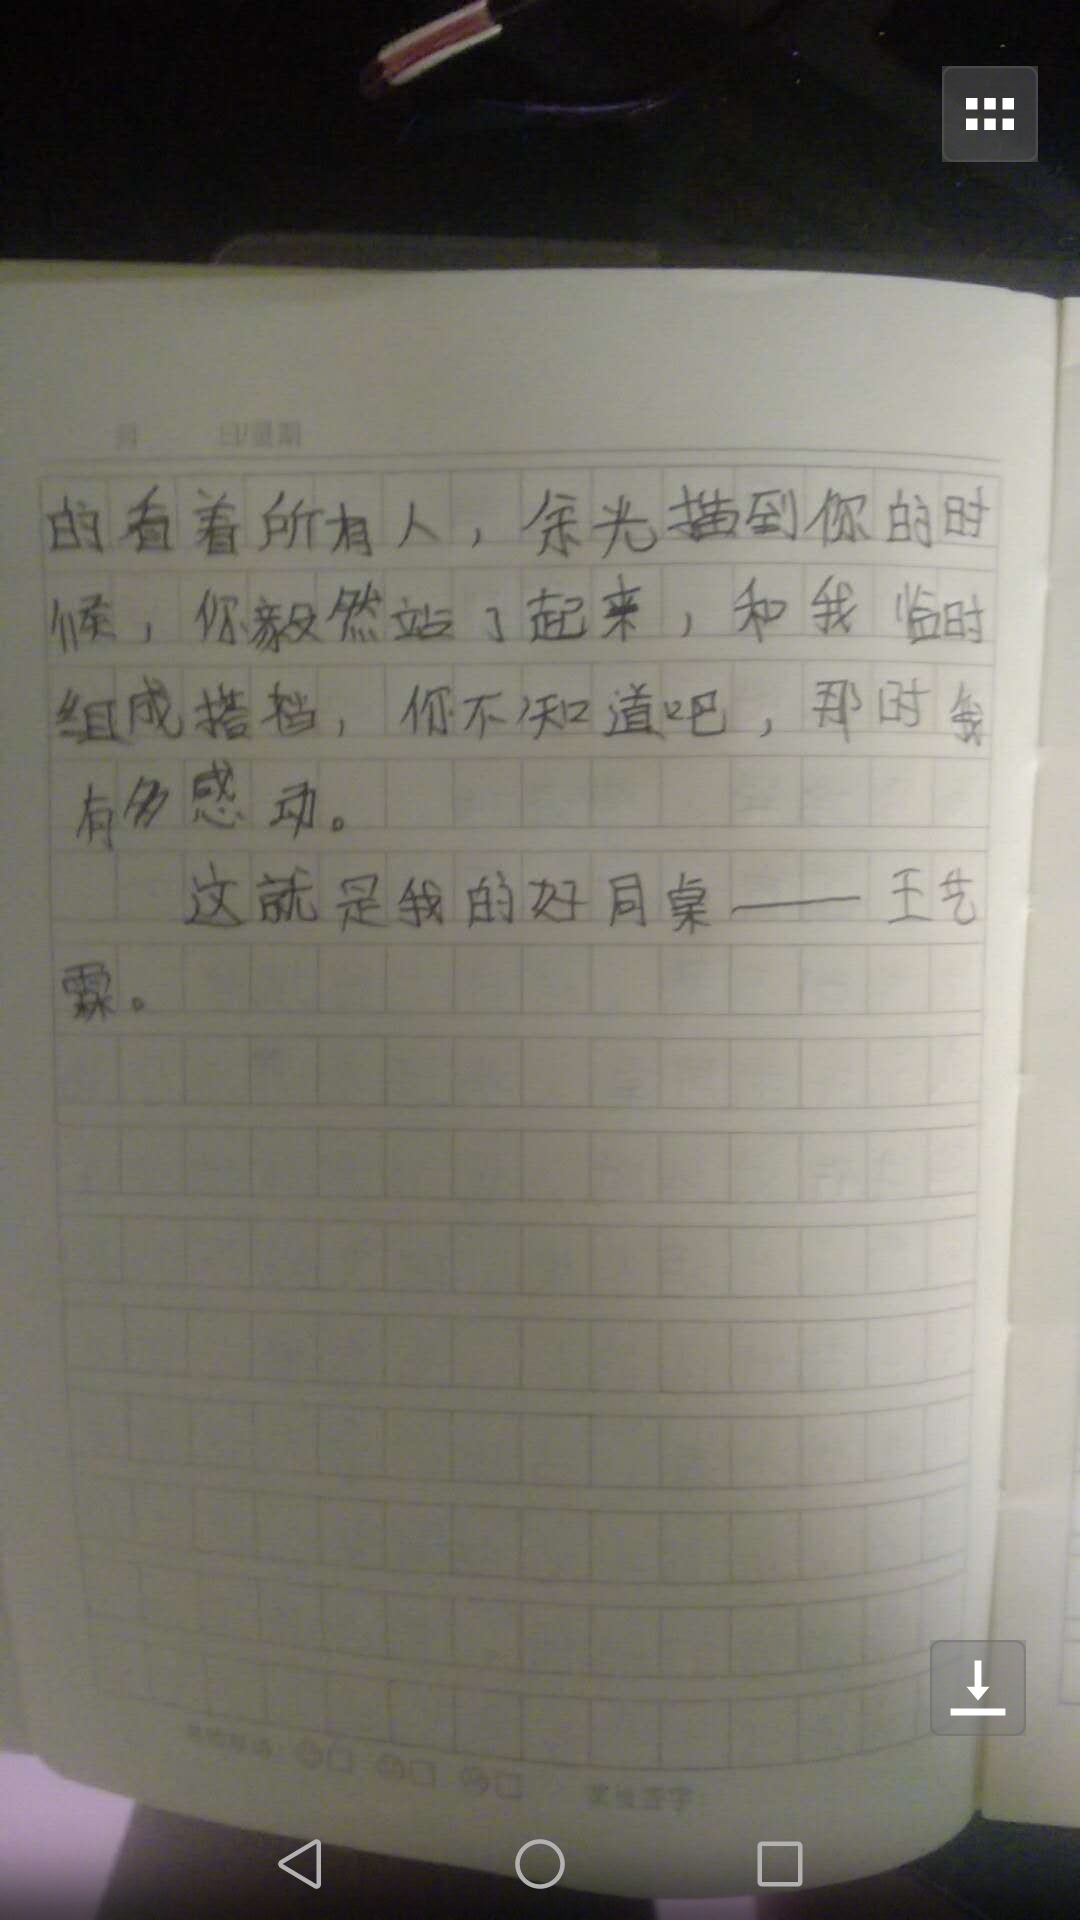 的看着所有人，余光描到你的时
候，你毅然站了起来，和我临时
组成搭档，你不知道吧，那时我
有多感动。
这就是我的好同桌——王艺
霖。